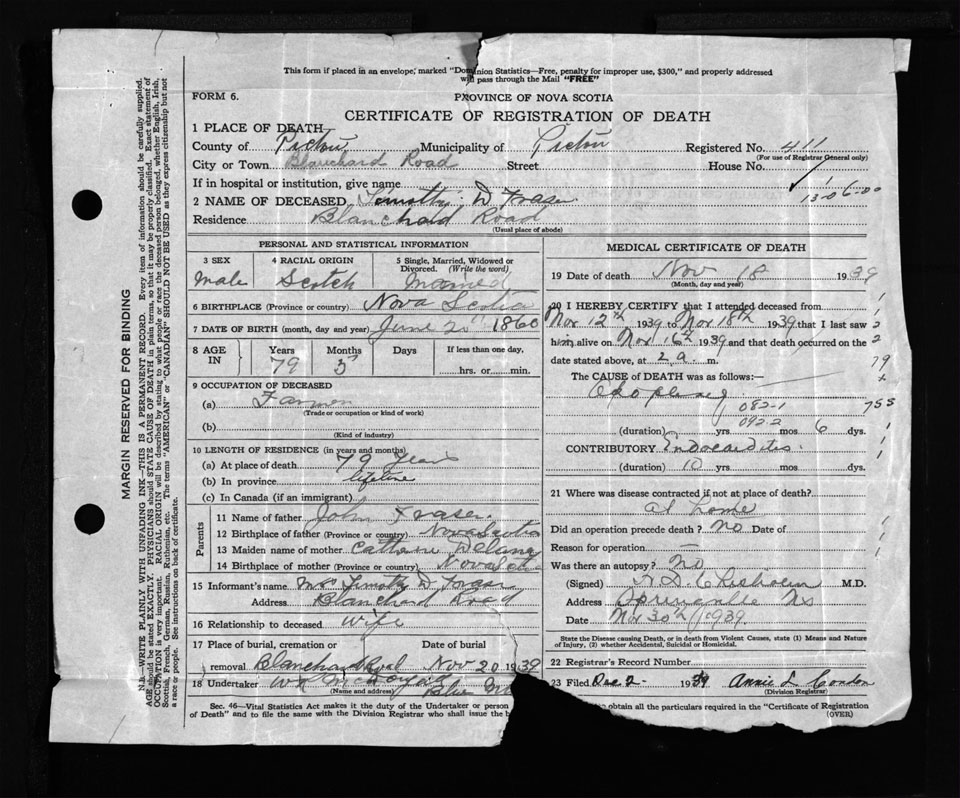 This form if placed in an envelope, marked "Dominion Statistics—Free, penalty for improper use, $300," and properly addressed
will pass through the Mail "FREE"
FORM 6.
PROVINCE OF NOVA SCOTIA
CERTIFICATE OF REGISTRATION OF DEATH
1 PLACE OF DEATH
County of Pictou Municipality of Pictou Registered No. 411
(For use of Registrar General only)
City or Town Blanchard Road Street House No.
If in hospital or institution, give name
2 NAME OF DECEASED Timothy D Fraser
Residence Blanchard Road
(Usual place of abode)
PERSONAL AND STATISTICAL INFORMATION
3 SEX 4 RACIAL ORIGIN 5 Single, Married, Widowed or Divorced. (Write the word)
Male Scotch Married
6 BIRTHPLACE (Province or country) Nova Scotia
7 DATE OF BIRTH (month, day and year) June 1860
8 AGE IN Years Months Days If less than one day,
79 5 hrs. or min.
9 OCCUPATION OF DECEASED
(a) Farmer
(Trade or occupation or kind of work)
(b)
(Kind of industry)
10 LENGTH OF RESIDENCE (in years and months)
(a) At place of death 79 Years
(b) In province lifetime
(c) In Canada (if an immigrant)
Parents
11 Name of father John Fraser
12 Birthplace of father (Province or country) Nova Scotia
13 Maiden name of mother Catherine
14 Birthplace of mother (Province or country) Nova Scotia
15 Informant's name Mrs Timothy D Fraser
Address Blanchard Road
16 Relationship to deceased Wife
17 Place of burial, cremation or Date of burial
removal Blanchard Road Nov 20 1939
18 Undertaker
(Name and address)
Sec. 46—Vital Statistics Act makes it duty of the Undertaker or person
of Death" and to file the same with the Division Registrar who shall issue the b
MEDICAL CERTIFICATE OF DEATH
19 Date of death Nov 18 1939
(Month, day and year)
20 I HEREBY CERTIFY that I attended deceased from
Nov 12th 1939 to Nov 18th 1939 that I last saw
him alive on Nov 16th 1939 and that death occurred on the
date stated above, at 2 a. m.
The CAUSE OF DEATH was as follows:—
082-1
092-2
(duration) yrs mos 6 dys.
CONTRIBUTORY Endocarditis
(duration) 10 yrs. mos. dys.
21 Where was disease contracted if not at place of death?
at home
Did an operation precede death? no Date of
Reason for operation
Was there an autopsy? No
(Signed) Chisholm M.D.
Address Springville NS
Date Nov 30th 1939.
State the Disease causing Death, or in death from Violent Causes, state (1) Means and Nature
of Injury, and (2) whether Accidental, Suicidal or Homicidal.
22 Registrar's Record Number
23 Filed Dec 2 1939 Annie L Condon
(Division Registrar)
to obtain all the particulars required in the "Certificate of Registration
(OVER)
MARGIN RESERVED FOR BINDING
N.B.—WRITE PLAINLY WITH UNFADING INK—THIS IS A PERMANENT RECORD. Every item of information should be carefully supplied.
AGE should be stated EXACTLY. PHYSICIANS should STATE CAUSE OF DEATH in plain terms, so that it may be properly classified. Exact statement of
OCCUPATION is very important. RACIAL ORIGIN will be described by stating to what people or race the deceased person belonged, whether English, Irish,
Scottish, French, German, Russian, Ruthenian, etc. The terms "AMERICAN" or "CANADIAN" SHOULD NOT BE USED as they express citizenship but not
a race or people. See instructions on back of certificate.